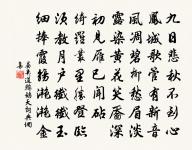 九日悲秋不到心
鳳城歌管有新音
風凋碧柳愁眉淡
露染黃花笑靨深
初見雁已聞砧
綺羅叢裏勝登臨
須教月戶纖纖玉
細捧霞觴灩灩金